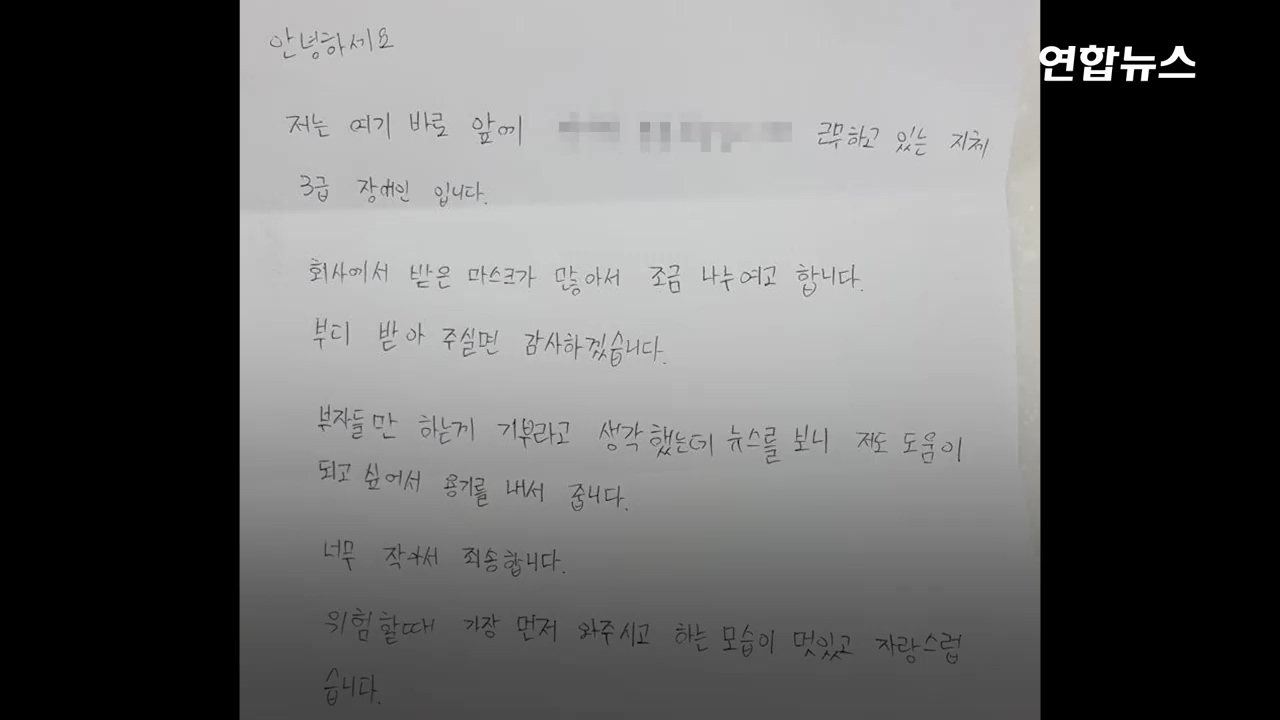 연합뉴스
안녕하세요
저는 여기 바로 앞에 근무하고 있는 지체
3급 장애인 입니다.
회사에서 받은 마스크가 많아서 조금 나누여고 합니다.
부디 받아 주실면 감사하겠습니다.
부자들만 하는게 기부라고 생각했는데 뉴스를 보니 저도 도움이
되고 싶어서 용기를 내서 줍니다.
너무 작아서 죄송합니다.
위험할때 가장 먼저 와주시고 하는 모습이 멋있고 자랑스럽
습니다.